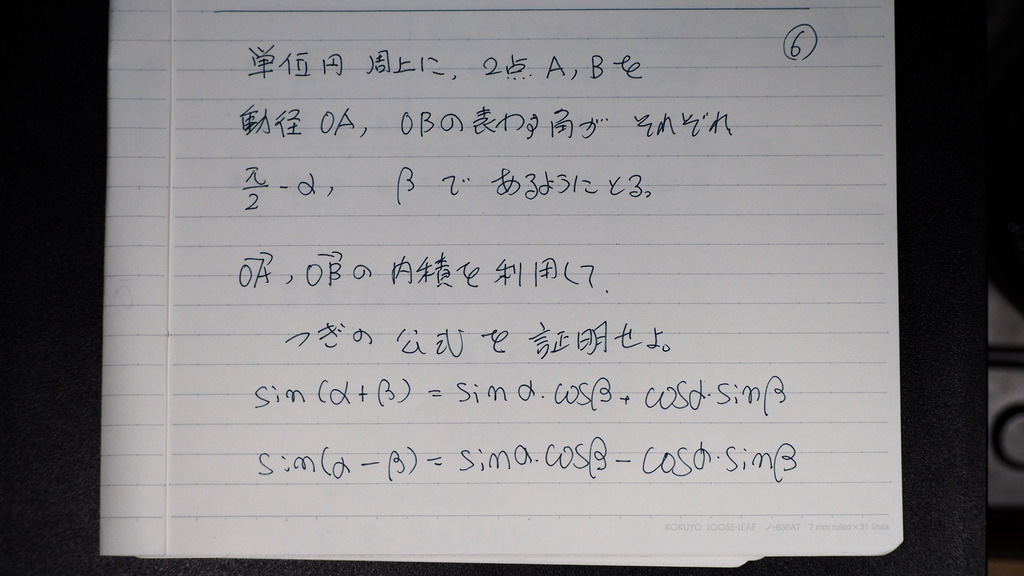 ⑥
単位円周上に、2点 A, B を
動径 OA, OBの表わす角が それぞれ
π/2 - α, β で あるようにとる。
→OA, →OB の 内積を利用して、
つぎの 公式を 証明せよ。
sin(α+β) = sinα・cosβ + cosα・sinβ
sin(α-β) = sinα・cosβ - cosα・sinβ
KOKUYO LOOSE-LEAF ノ-836AT 7 mm ruled×31 lines